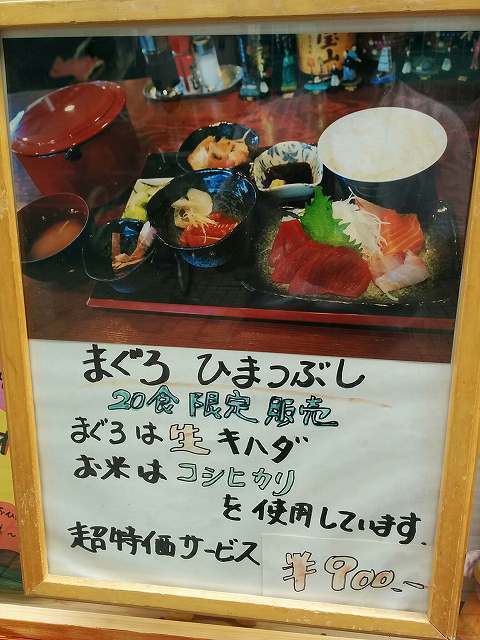 まぐろ ひまつぶし
20食 限定 販売
まぐろは 生 キハダ
お米は コシヒカリ
を使用しています.
超特価サービス
¥900.-